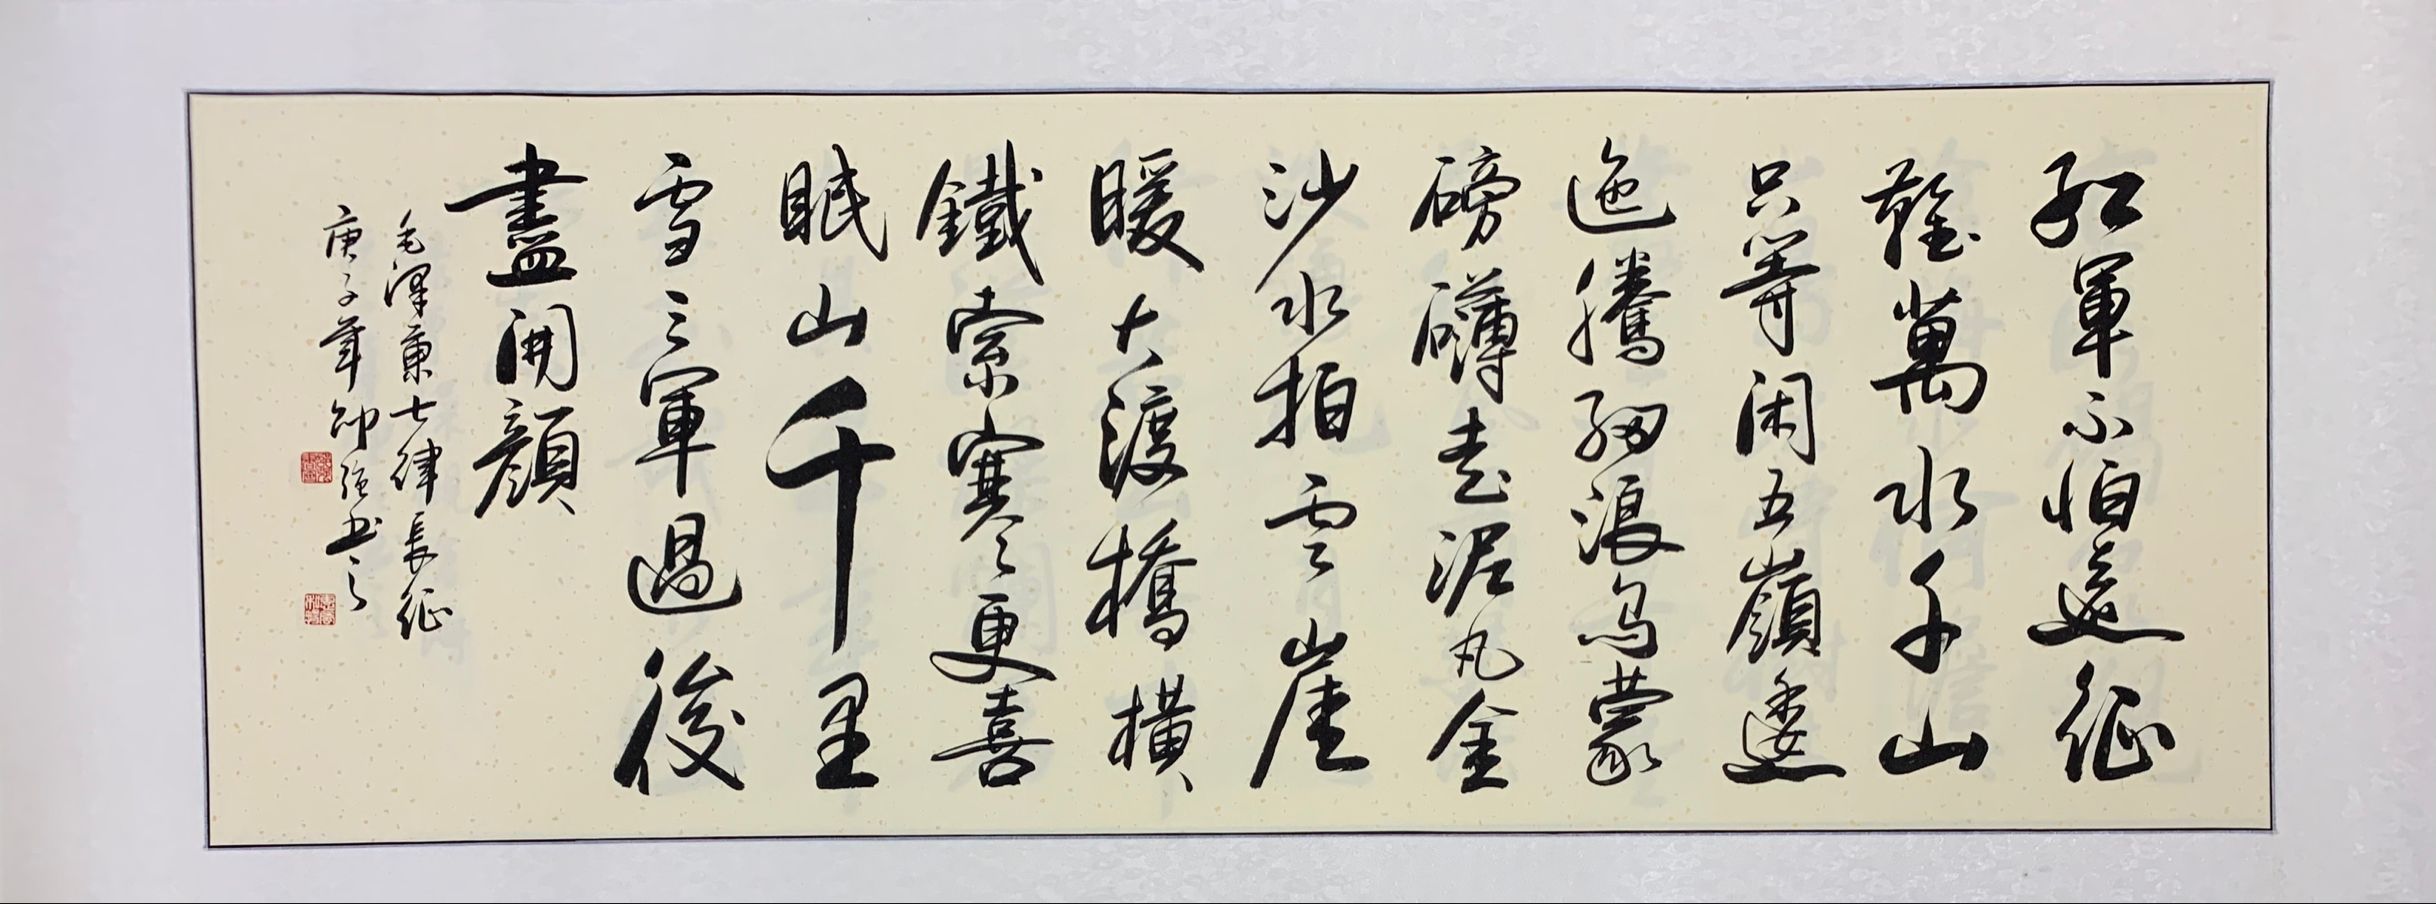 紅軍不怕遠征
難萬水千山
只等閑五嶺逶
迤騰細浪烏蒙
磅礴走泥丸金
沙水拍雲崖
暖大渡橋橫
鐵索寒更喜
岷山千里
雪三軍過後
盡開顏
毛澤東七律長征
庚子年 書之